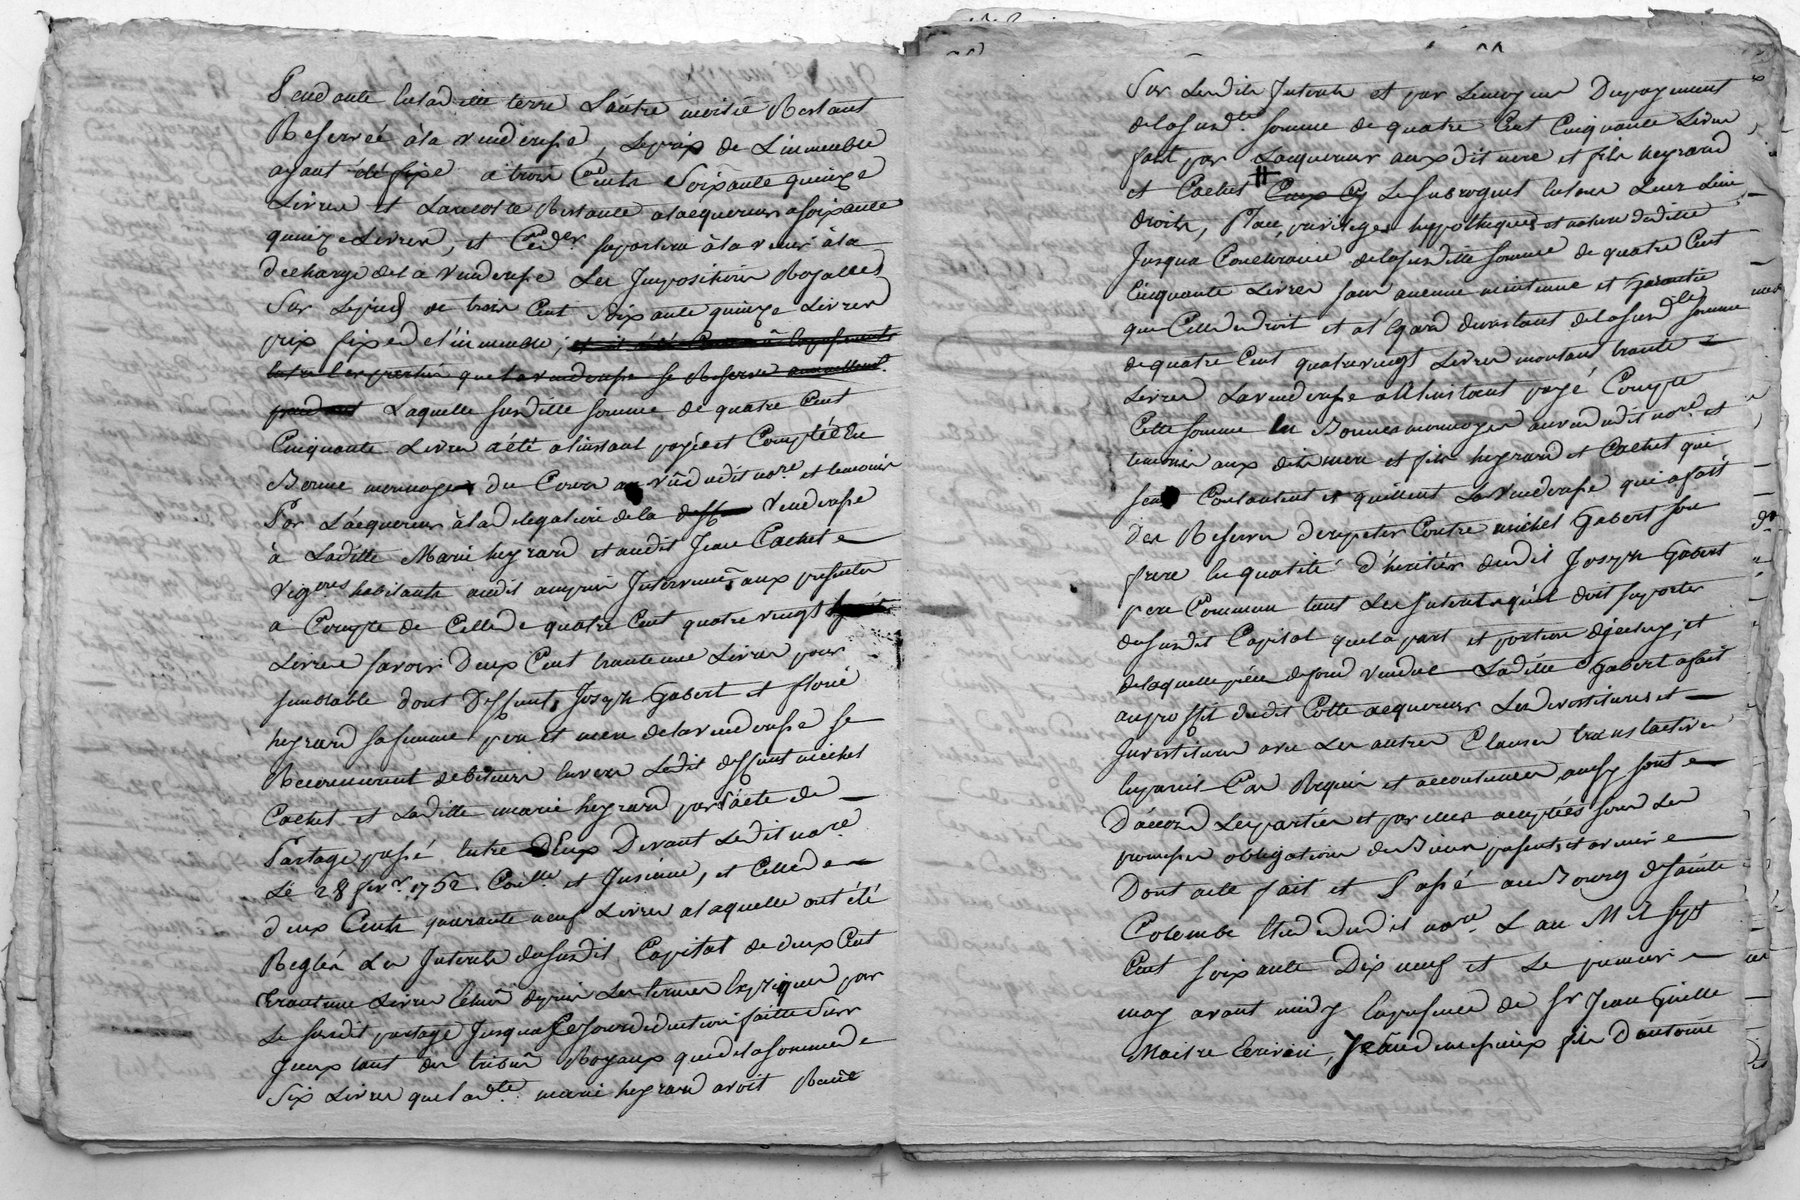 Pendante en laditte terre L'autre moitié Restant
Reservée à la venderesse, Le prix de L'immeuble
ayant été fixé a trois Cents Soixante quinze
Livres et Restante a lacquereur a soixante
quinze Livres, et suportera à la venir à la
decharge de la venderesse Les Impositions Royalles
Sur Le pied de trois Cent Soixante quinze Livres
prix fixé de l'immeuble;
que la venderesse se Reserve
Laquelle susditte somme de quatre Cent
Cinquante Livres a été a l'instant payée et Comptée En
Bonne monnoye du Cours au vû dudit nore et temoins
Par L'acquereur à la delegation de la venderesse
à Laditte Marie heyrard et audit Jean Cachet
Vignons habitants audit ampuis Intervenûs aux presentes
a Compte de Celle de quatre Cent quatre vingt
Livres savoir Deux Cent trante une Livres pour
semblable dont Deffunts Joseph Gabert et florie
heyrard sa femme pere et mere de la venderesse se
Reconnurent debiteurs envers Ledit deffunt michel
Cachet et Laditte marie heyrard par L'acte de
Partage passé Entre Eux Devant Ledit nore
Le 28 fevr. 1752. Coñllé et Insinué, et Celle de
deux Cents quarante neuf Livres a laquelle ont été
Reglés Les Interets du susdit Capital de deux Cent
trante une Livres Echûs depuis Les termes Expliqués par
Le susdit partage Jusqua Ce Jourd deduction faitte sur
Iceux tant des tributs Royaux que de la somme de
Six Livres que lade. marie heyrard avoit Recûe
Sur Lesdits Interets et par Le moyen Du payement
de la susde. somme de quatre Cent Cinquante Livres
fait par Lacquereur auxdit mere et fils heyrard
et Cachet Ceux Cy Le subrogent En tous Leurs
droits, Place, privileges hyppotheques et nature de ditte
Jusqua Concurrance de la susditte somme de quatre Cent
Cinquante Livres sans aucune maintenue et Garantie
que Celle de droit et a l'Egard du restant de la susde. somme
de quatre Cent quatre vingt Livres montant trante
Livres La venderesse a a L'instant payé Compté
Cette somme En Bonnes monnoyes au vû dudit nore. et
temoins aux dits mere et fils heyrard et Cachet qui
s'en Contantent et quittent La Venderesse qui a fait
Des Reserves de repeter Contre michel Gabert son
frere En qualité d'heritier dudit Joseph Gabert
pere Commun tant Les Interets qu'il doit suporter
du susdit Capital que la part et portion d'jcelluy, et
de laquelle piece de fond vendue Laditte Gabert a fait
au proffit dudit Cotte acquereur Les devestitures et
Investitures avec Les autres Clauses translactives
En pareil Cas Requis et accoutumées ainsy sont
D'accord Les parties et par elles acceptées sous Les
promesses obligations de Biens presents et avenir
Dont acte fait et Passé au Bourg de sainte
Colombe Etude dudit nore. L'an Mil sept
Cent soixante Dix neuf et Le premier
may avant midy En presence de sr Jean Guille
Maitre Ecrivain, Jean fils D'antoine